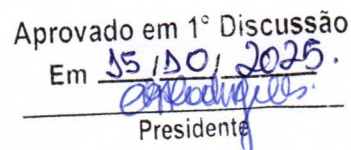 Aprovado em 1° Discussão
Em 15/10/2025.
Presidente